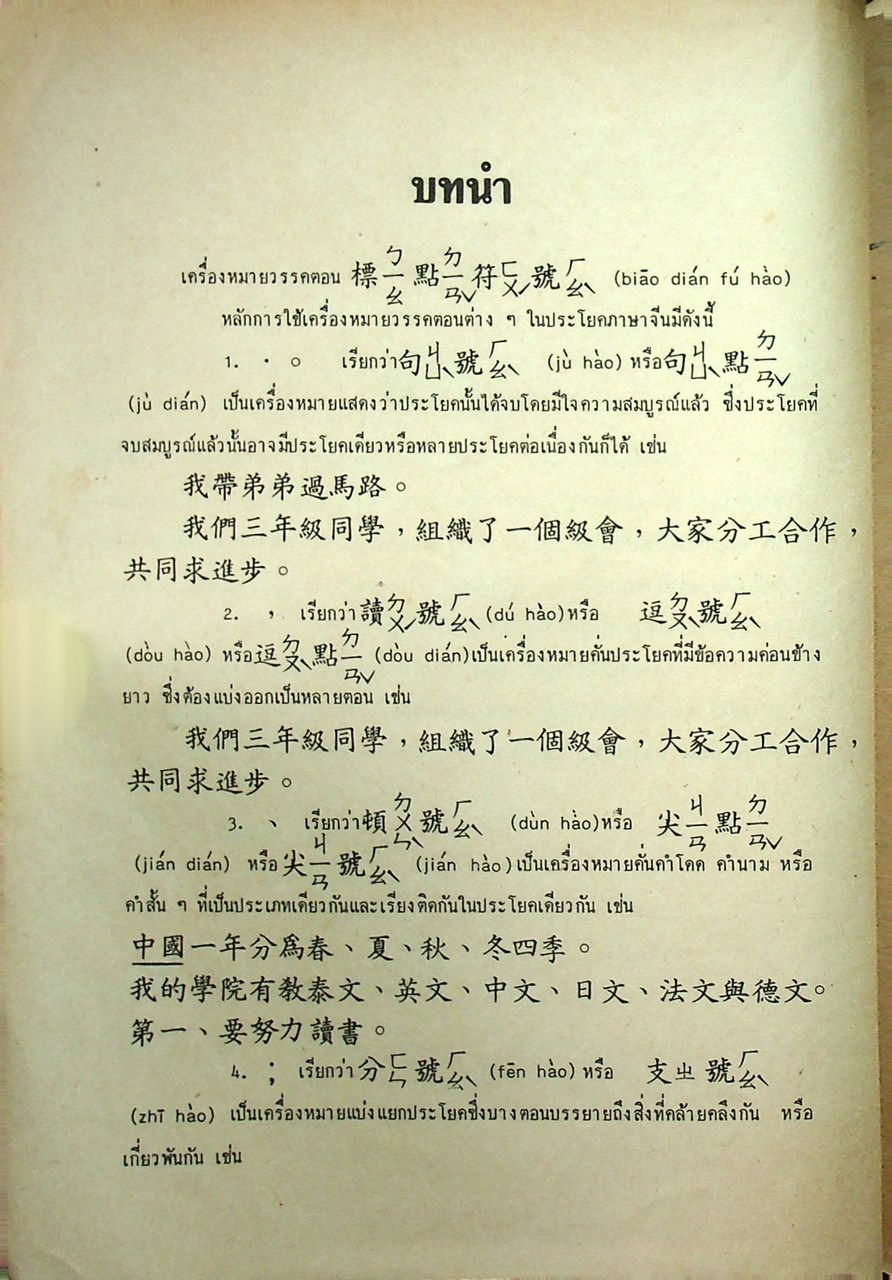 บทนำ
เครื่องหมายวรรคตอน 標ㄅㄧㄠ點ㄉㄧㄢˇ符ㄈㄨˊ號ㄏㄠˋ (biāo dián fú hào)
หลักการใช้เครื่องหมายวรรคตอนต่าง ๆ ในประโยคภาษาจีนมีดังนี้
1. · 。 เรียกว่า句ㄐㄩˋ號ㄏㄠˋ (jù hào) หรือ句ㄐㄩˋ點ㄉㄧㄢˇ
(jù dián) เป็นเครื่องหมายแสดงว่าประโยคนั้นได้จบโดยมีใจความสมบูรณ์แล้ว ซึ่งประโยคที่
จบสมบูรณ์แล้วนั้นอาจมีประโยคเดียวหรือหลายประโยคต่อเนื่องกันก็ได้ เช่น
我帶弟弟過馬路。
我們三年級同學，組織了一個級會，大家分工合作，
共同求進步。
2. ， เรียกว่า讀ㄉㄨˊ號ㄏㄠˋ(dú hào)หรือ 逗ㄉㄡˋ號ㄏㄠˋ
(dòu hào) หรือ逗ㄉㄡˋ點ㄉㄧㄢˇ (dòu dián)เป็นเครื่องหมายคั่นประโยคที่มีข้อความค่อนข้าง
ยาว ซึ่งต้องแบ่งออกเป็นหลายตอน เช่น
我們三年級同學，組織了一個級會，大家分工合作，
共同求進步。
3. 、 เรียกว่า頓ㄉㄨㄣˋ號ㄏㄠˋ (dùn hào)หรือ 尖ㄐㄧㄢ點ㄉㄧㄢˇ
(jián dián) หรือ尖ㄐㄧㄢ號ㄏㄠˋ (jián hào)เป็นเครื่องหมายคั่นคำโดด คำนาม หรือ
คำสั้น ๆ ที่เป็นประเภทเดียวกันและเรียงติดกันในประโยคเดียวกัน เช่น
中國一年分爲春、夏、秋、冬四季。
我的學院有教泰文、英文、中文、日文、法文與德文。
第一、要努力讀書。
4. ； เรียกว่า分ㄈㄣ號ㄏㄠˋ (fēn hào) หรือ 支ㄓ號ㄏㄠˋ
(zhī hào) เป็นเครื่องหมายแบ่งแยกประโยคซึ่งบางตอนบรรยายถึงสิ่งที่คล้ายคลึงกัน หรือ
เกี่ยวพันกัน เช่น